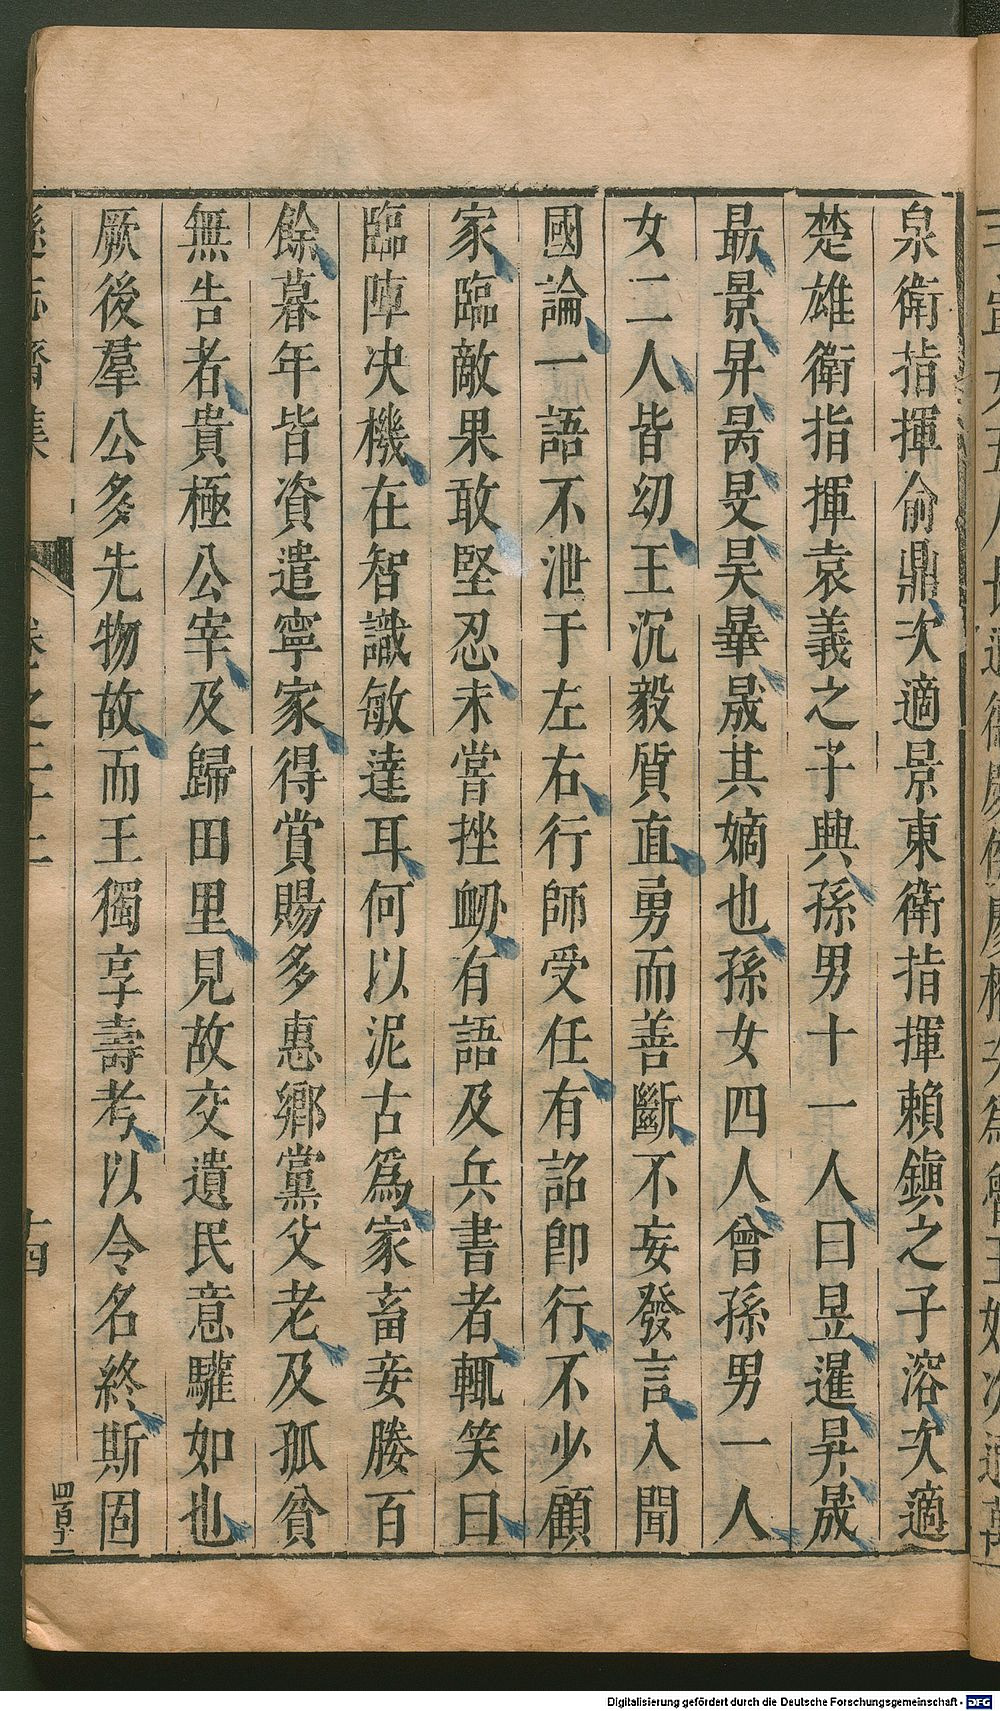 泉衛指揮俞鼎次適景東衛指揮賴鎮之子溶次適
楚雄衛指揮袁義之子興孫男十一人曰昱暹昇晟
最景昇昺旻昊曅晟其嫡也孫女四人曾孫男一人
女二人皆幼王沉毅質直勇而善斷不妄發言入聞
國論一語不泄于左右行師受任有詔卽行不少顧
家臨敵果敢堅忍未嘗挫衂有語及兵書者輒笑曰
臨陣决機在智識敏達耳何以泥古爲家畜妾媵百
餘暮年皆資遣寧家得賞賜多惠鄉黨父老及孤貧
無告者貴極公宰及歸田里見故交遺民意驩如也
厥後羣公多先物故而王獨享壽考以令名終斯固
遜志齋集 卷之二十二 十四
四百十一
Digitalisierung gefördert durch die Deutsche Forschungsgemeinschaft - DFG